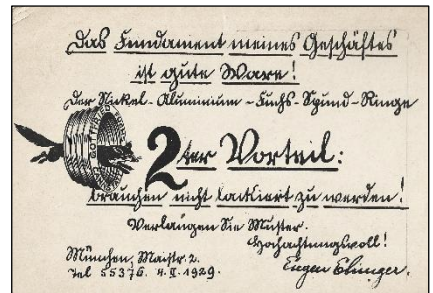 Das Fundament meines Geschäftes
ist gute Ware!
Der Nickel-Aluminium-Fuchs-Spund-Ringe
2ter Vorteil:
brauchen nicht lackiert zu werden!
Verlangen Sie Muster.
Hochachtungsvoll!
München, Maistr. 2.
Tel 55376. 4. II. 1929.
Eugen